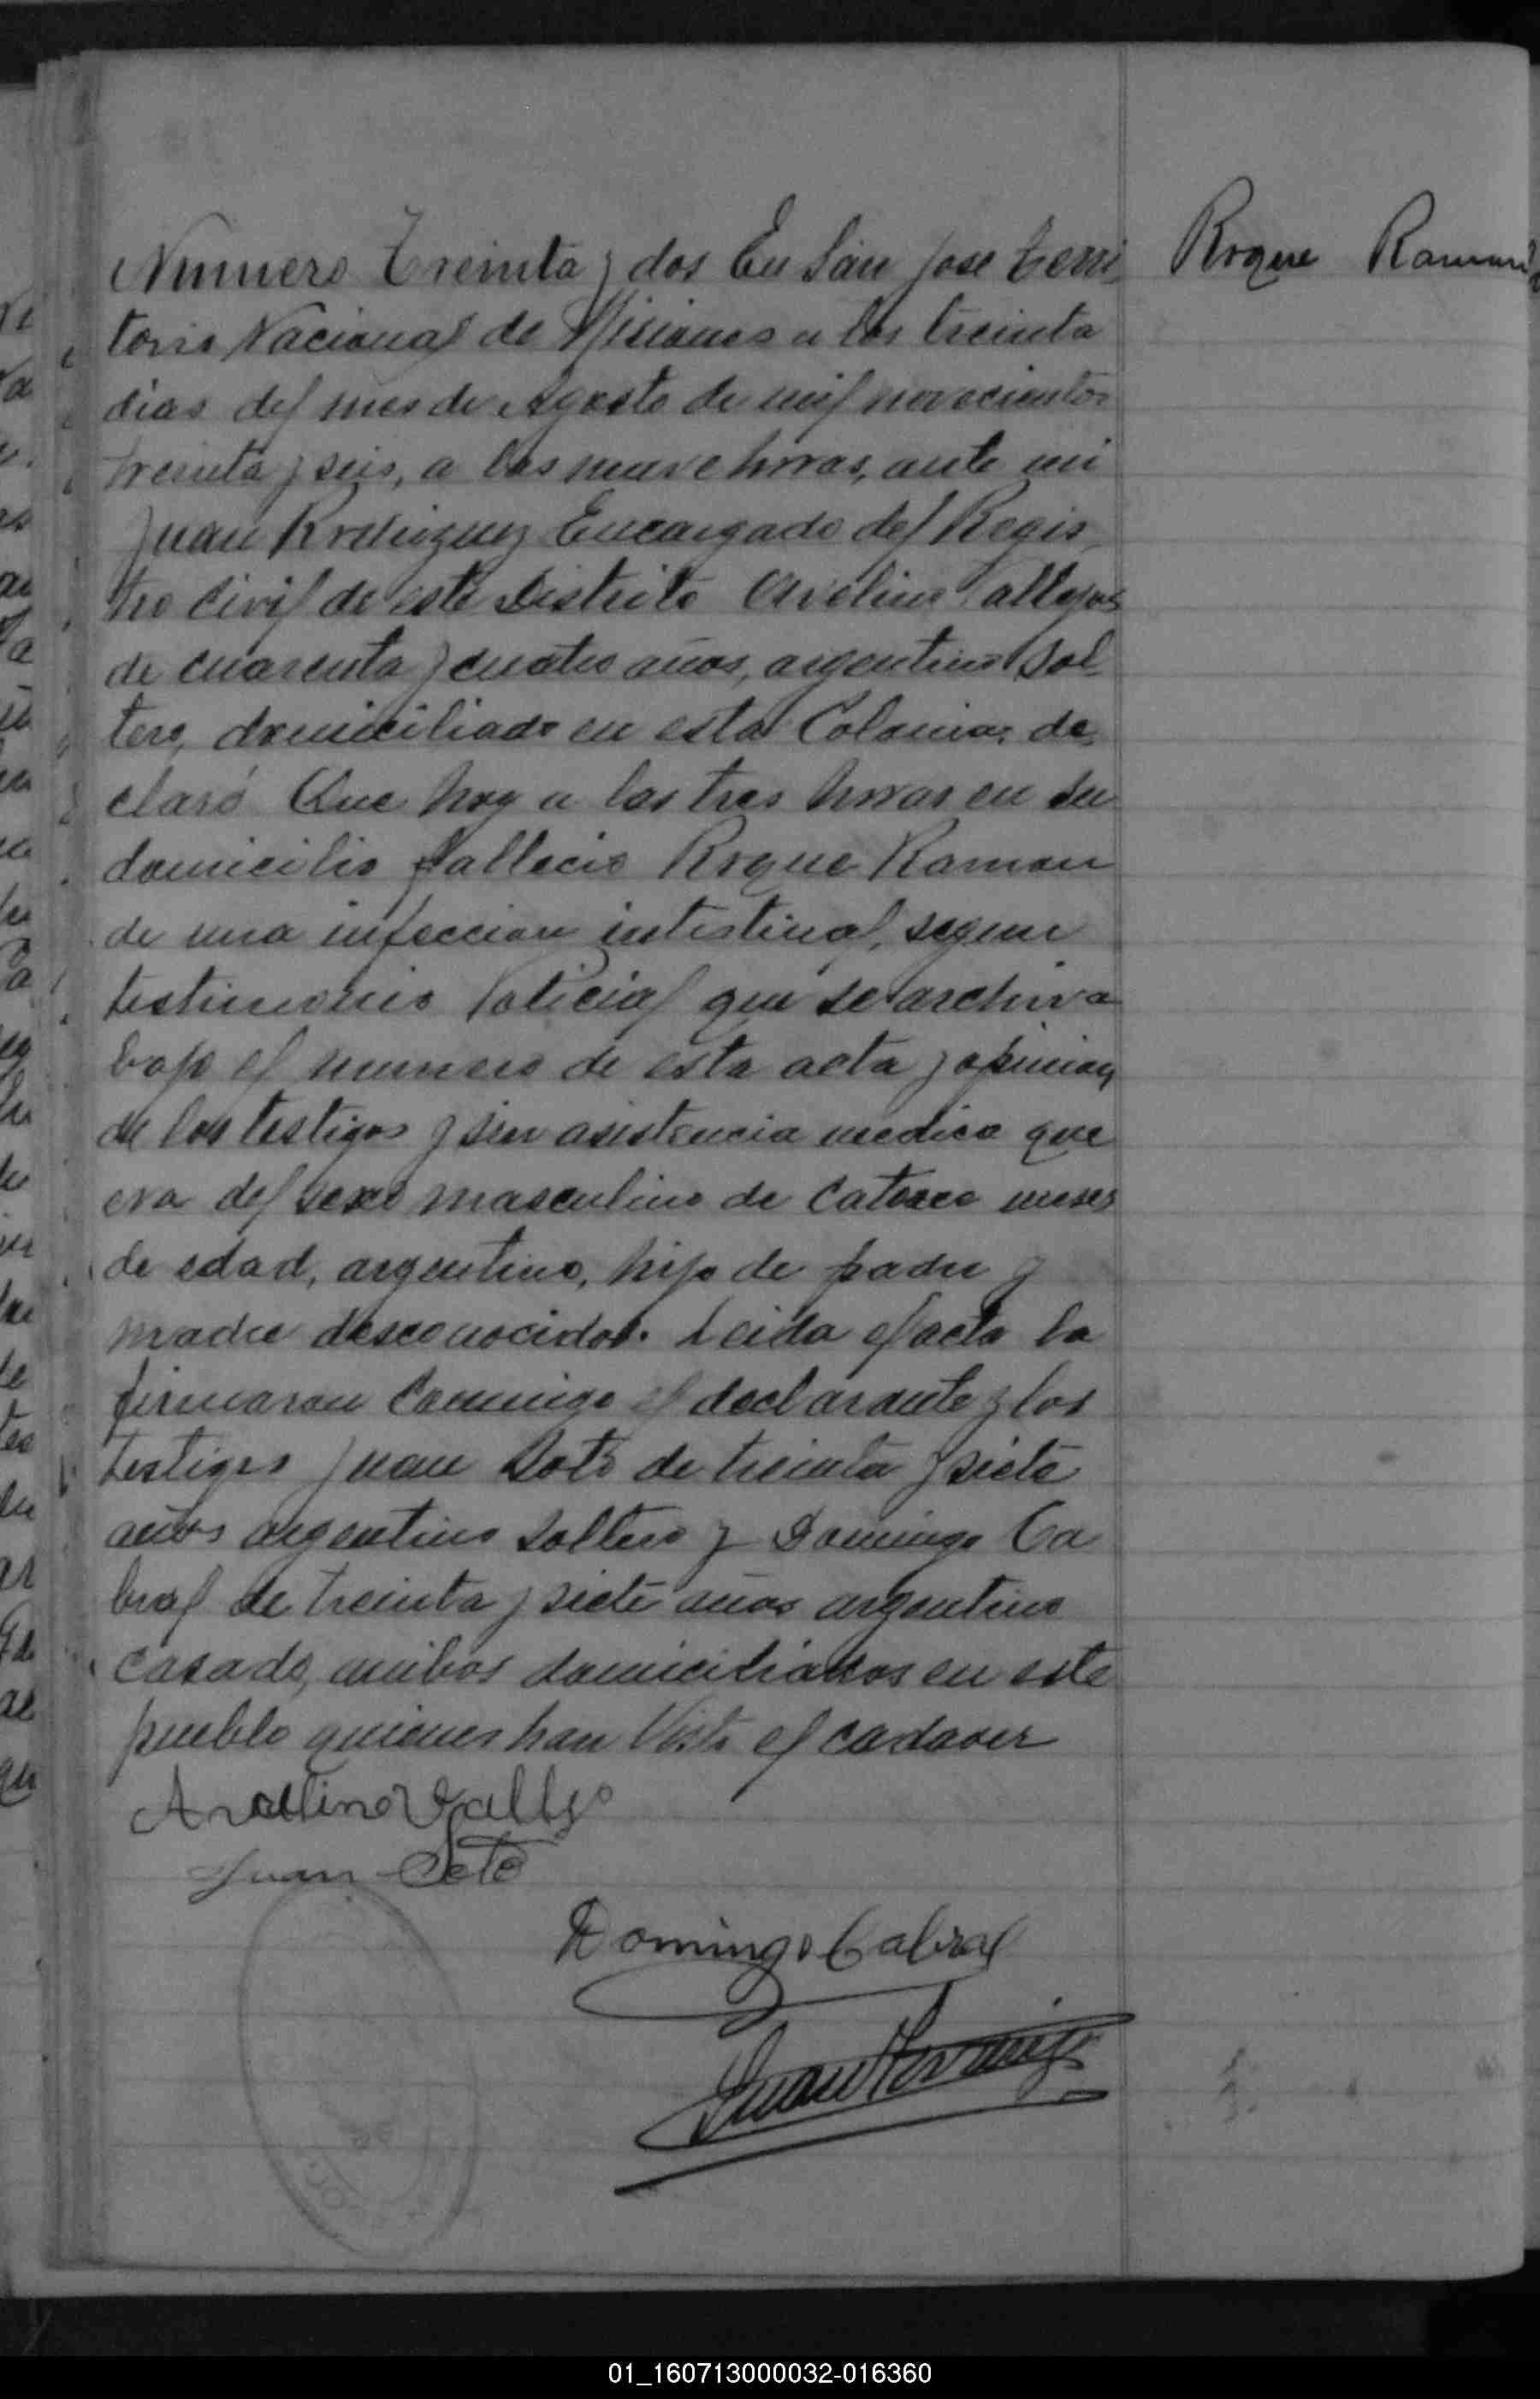 Numero Treinta y dos En San Jose Terri-
torio Nacional de Misiones a los treinta
dias del mes de Agosto de mil novecientos
treinta y seis, a las nueve horas, ante mi
Juan Rodriguez Encargado del Regis-
tro Civil de este Distrito Avelino Vallejos
de cuarenta y cuatro años, argentino sol-
tero, domiciliado en esta Colonia, de-
claró Que hoy a las tres horas en su
domicilio fallecio Roque Ramon
de una infeccion intestinal, segun
testimonio Policial que se archiva
bajo el numero de esta acta y opinion
de los testigos y sin asistencia medica que
era del sexo masculino de catorce meses
de edad, argentino, hijo de padre y
madre desconocidos. Leida el acta la
firmaron conmigo el declarante y los
testigos Juan Soto de treinta y siete
años argentino soltero y Domingo Ca
bral de treinta y siete años argentino
casado, ambos domiciliados en este
pueblo quienes han Visto el cadaver
Avallino Vallejo
Juan Soto
Domingo Cabral
Juan
Roque
01_160713000032-016360